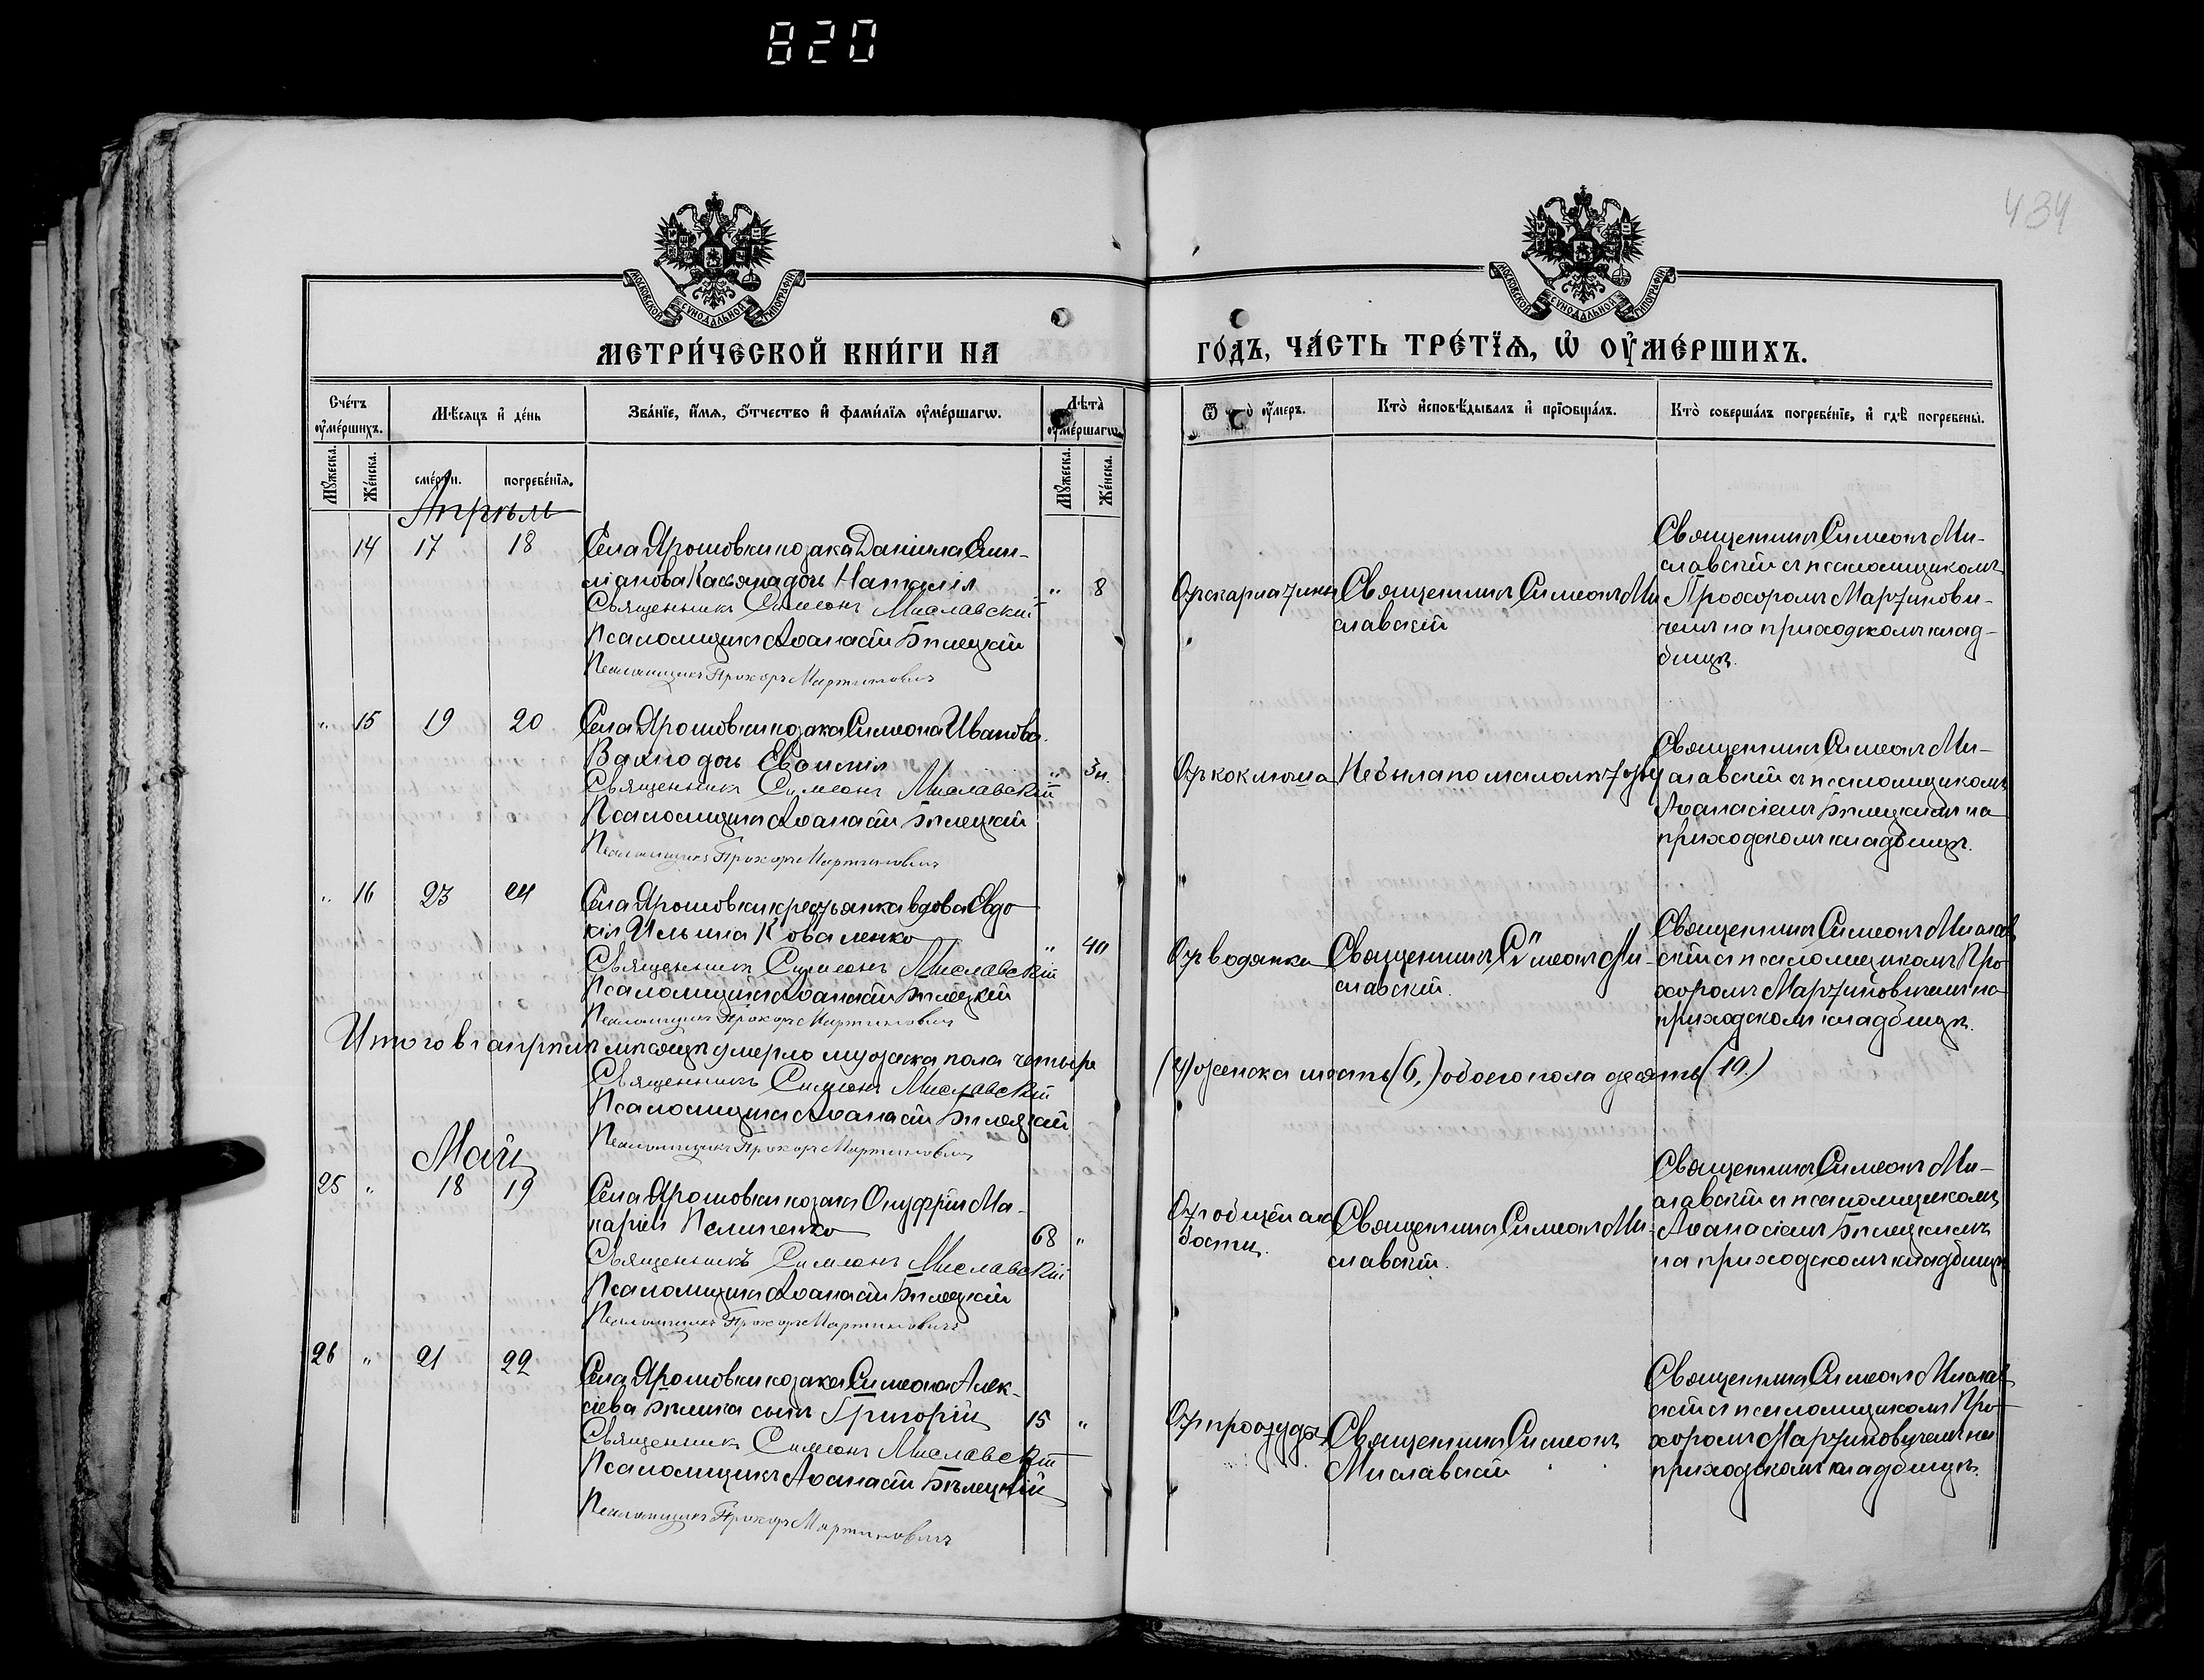 820
434
МОСКОВСКОЙ СУНОДАЛЬНОЙ ТИПОГРАФІИ
МОСКОВСКОЙ СУНОДАЛЬНОЙ ТИПОГРАФІИ
МЕТРИ́ЧЕСКОЙ КНИ́ГИ НА
ГО́ДЪ, ЧА́СТЬ ТРЕ́ТЇѦ, Ѡ ОУМЕ́РШИХЪ.
Счéтъ оумéршихъ.
Мѣсяцъ и дéнь
Звáнїе, и́мѧ, о́тчество и фами́лїѧ оумéршагѡ.
Лѣтà оумéршагѡ.
Ѿ оумеръ.
Ктò исповѣдывалъ и прїобщáлъ.
Ктò совершáлъ погребéнїе, и гдѣ погребены̀.
Мужеска.
Жéнска.
смéрти.
погребéнїѧ.
Мужеска.
Жéнска.
Апрѣль
14 17 18 Села Ярошовки козака Даніила Еми-
ліанова Касьяна дочь Наталія " 8
Священникъ Симеонъ Миславскій
Псаломщикъ Аѳанасій Бѣлецкій
Псаломщикъ Прохоръ Мартиновичъ
От скарлатины
Священникъ Симеонъ Ми
славскій
Священникъ Симеонъ Ми-
славскій съ псаломщикомъ
Прохоромъ Мартинови-
чемъ на приходскомъ клад-
бищѣ.
" 15 19 20 Села Ярошовки козака Симеона Иванова
Вахно дочь Евфимія " 3н.
Священникъ Симеонъ Миславскій
Псаломщикъ Аѳанасій Бѣлецкій
Псаломщикъ Прохоръ Мартиновичъ
От коклюша
Не была по малолѣтству
Священникъ Симеонъ Ми-
славскій съ псаломщикомъ
Аѳанасіемъ Бѣлецкимъ на
приходскомъ кладбищѣ.
" 16 23 24 Села Ярошовки крестьянка вдова Евдо
кія Ильина Коваленко " 40
Священникъ Симеонъ Миславскій
Псаломщикъ Аѳанасій Бѣлецкій
Псаломщикъ Прохоръ Мартиновичъ
От водянки
Священникъ Симеонъ Ми-
славскій.
Священникъ Симеонъ Мислав
скій съ псаломщикомъ Про
хоромъ Мартиновичемъ на
приходскомъ кладбищѣ.
Итого въ апрѣлѣ мѣсяцѣ умерло мужеска пола четыре (4) женска шесть (6,) обоего пола десять (10.)
Священникъ Симеонъ Миславскій
Псаломщикъ Аѳанасій Бѣлецкій
Псаломщикъ Прохоръ Мартиновичъ
Май
25 " 18 19 Села Ярошовки козакъ Онуфрій Ма-
каріевъ 68 "
Священникъ Симеонъ Миславскій
Псаломщикъ Аѳанасій Бѣлецкій
Псаломщикъ Прохоръ Мартиновичъ
От общей сла
бости.
Священникъ Симеонъ Ми-
славскій.
Священникъ Симеонъ Ми-
славскій съ псаломщикомъ
Аѳанасіемъ Бѣлецкимъ
на приходскомъ кладбищѣ
26 " 21 22 Села Ярошовки козака Симеона Алек-
сіева Бѣлика сынъ Григорій 15 "
Священникъ Симеонъ Миславскій
Псаломщикъ Аѳанасій Бѣлецкій
Псаломщикъ Прохоръ Мартиновичъ
От простуды
Священникъ Симеонъ
Миславскій
Священникъ Симеонъ Мислав
скій съ псаломщикомъ Про-
хоромъ Мартиновичемъ на
приходскомъ кладбищѣ.